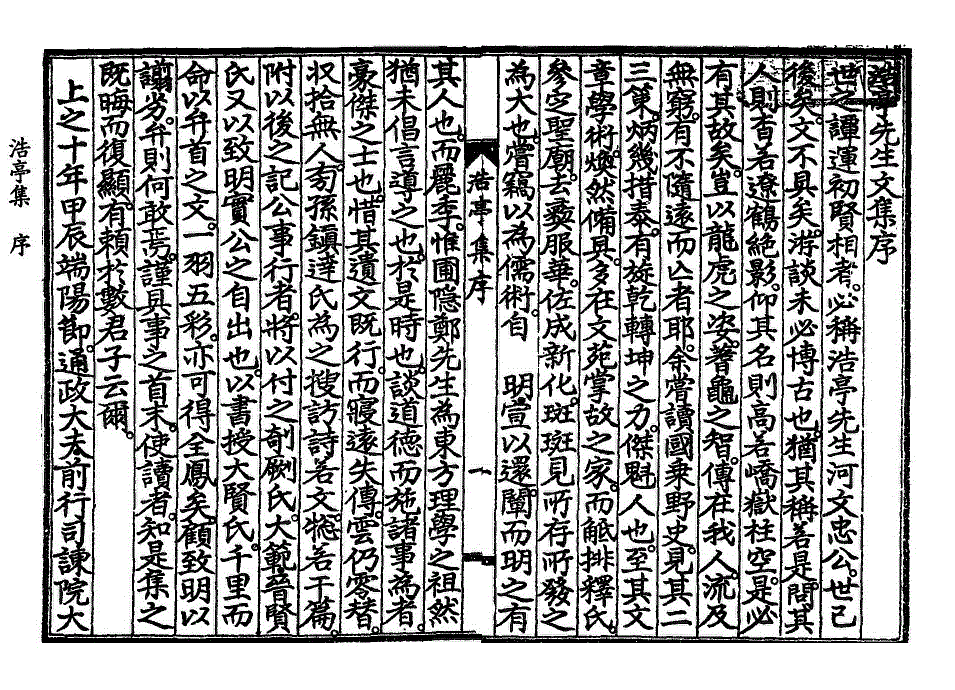 浩亭先生文集序
世之譚運初賢相者。必稱浩亭先生河文忠公。世已
後矣。文不具矣。游談未必博古也。猶其稱善是。問其
人則杳若遼鶴絕影。仰其名則高若嶠獄柱空。是必
有其故矣。豈以龍虎之姿。蓍龜之智。傳在我人。流及
無窮。有不隨遠而亾者耶。余嘗讀國乗野史。見其二
三策。炳幾措泰。有旋乾轉坤之力。傑魁人也。至其文
章學術。煥然備具。多在文苑掌故之家。而觝排釋氏。
參定聖廟。去夷服華。佐成新化。斑斑見所存所發之
為大也。嘗竊以為儒術。自 明宣以還。闡而明之有
浩亭集序 一
其人也。而麗季。惟圃隐鄭先生為東方理學之祖。然
猶未倡言導之也。於是時也。談道德而施諸事為者。
豪傑之士也。惜其遺文既行。而寢遠失傳。雲仍零替。
収拾無人。旁孫鎭達氏為之搜訪詩若文。揔若干篇。
附以後之記公事行者。將以付之剞劂氏。大範晉賢
氏又以致明實公之自出也。以書授大賢氏。千里而
命以弁首之文。一羽五彩。亦可得全鳳矣。顧致明以
謭劣。弁則何敢焉。謹具事之首末。使讀者。知是集之
既晦而復顯。有頼於數君子云爾。
上之十年甲辰端陽節。通政大夫前行司諫院大
浩亭集 序